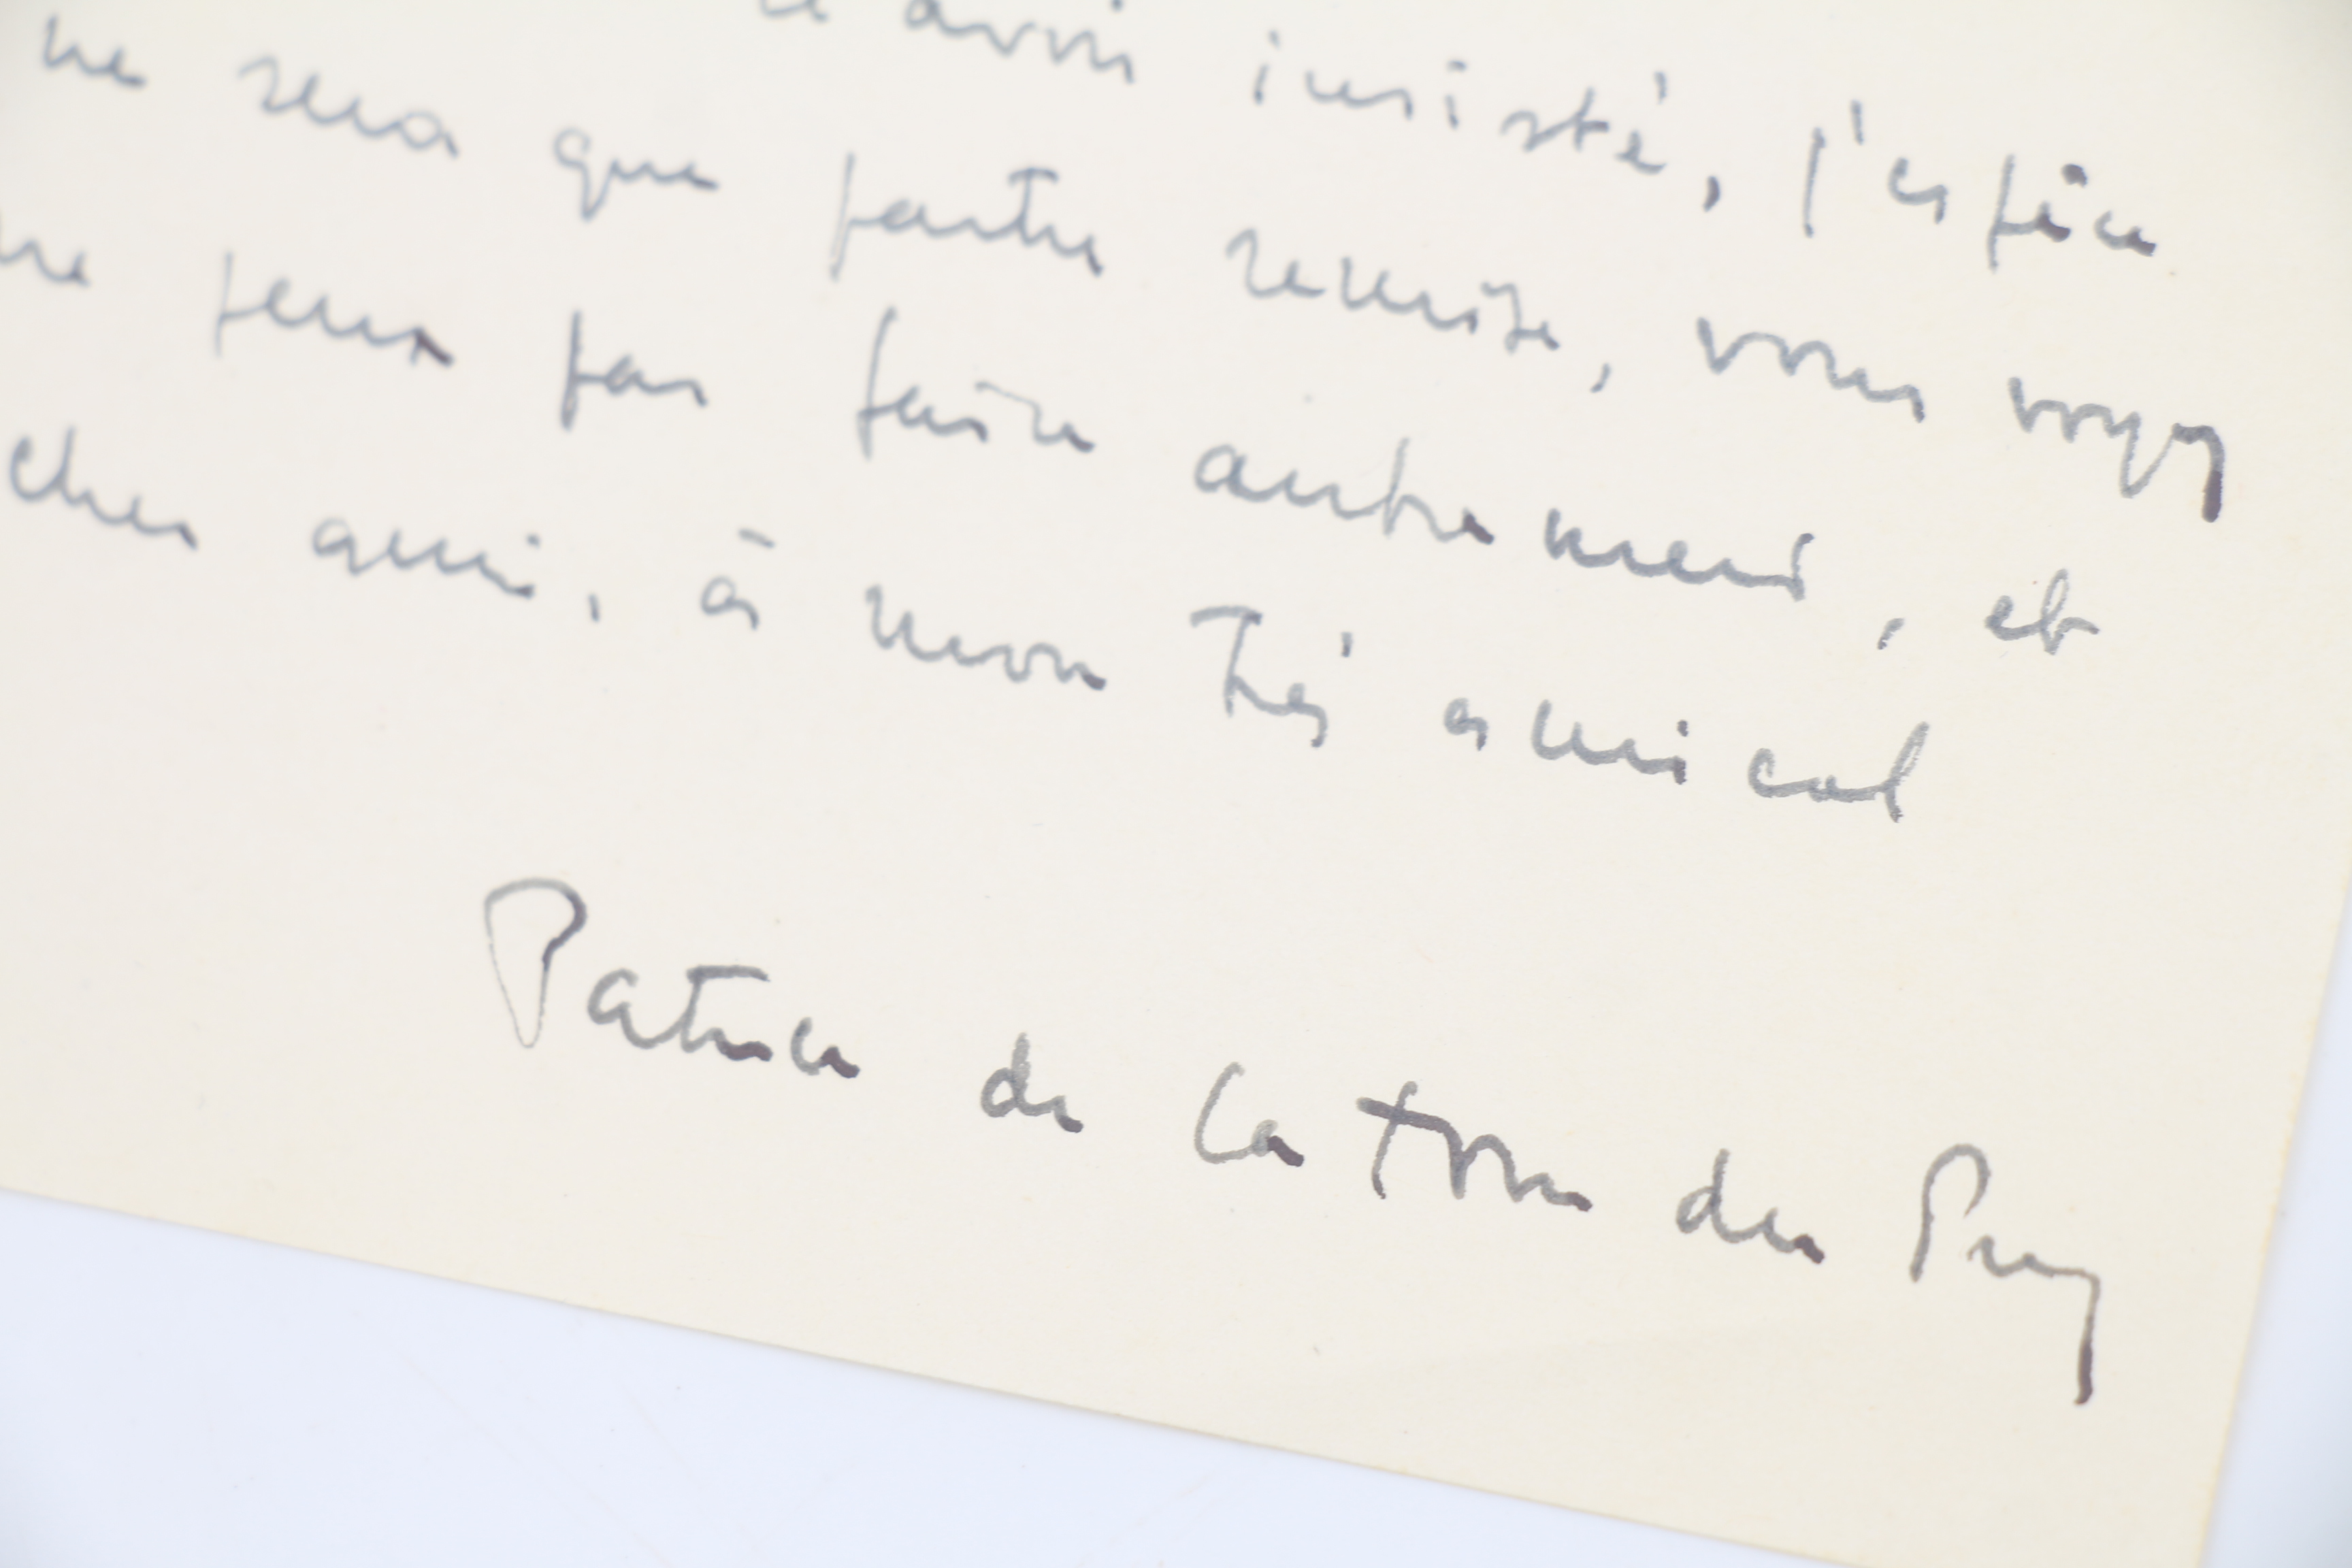 d'avoir insisté, j'espère
ne sera que partie remise, vous voyez
ne peux pas faire autrement, et
cher ami, à mon très amical
Patrice de La Tour du Pin